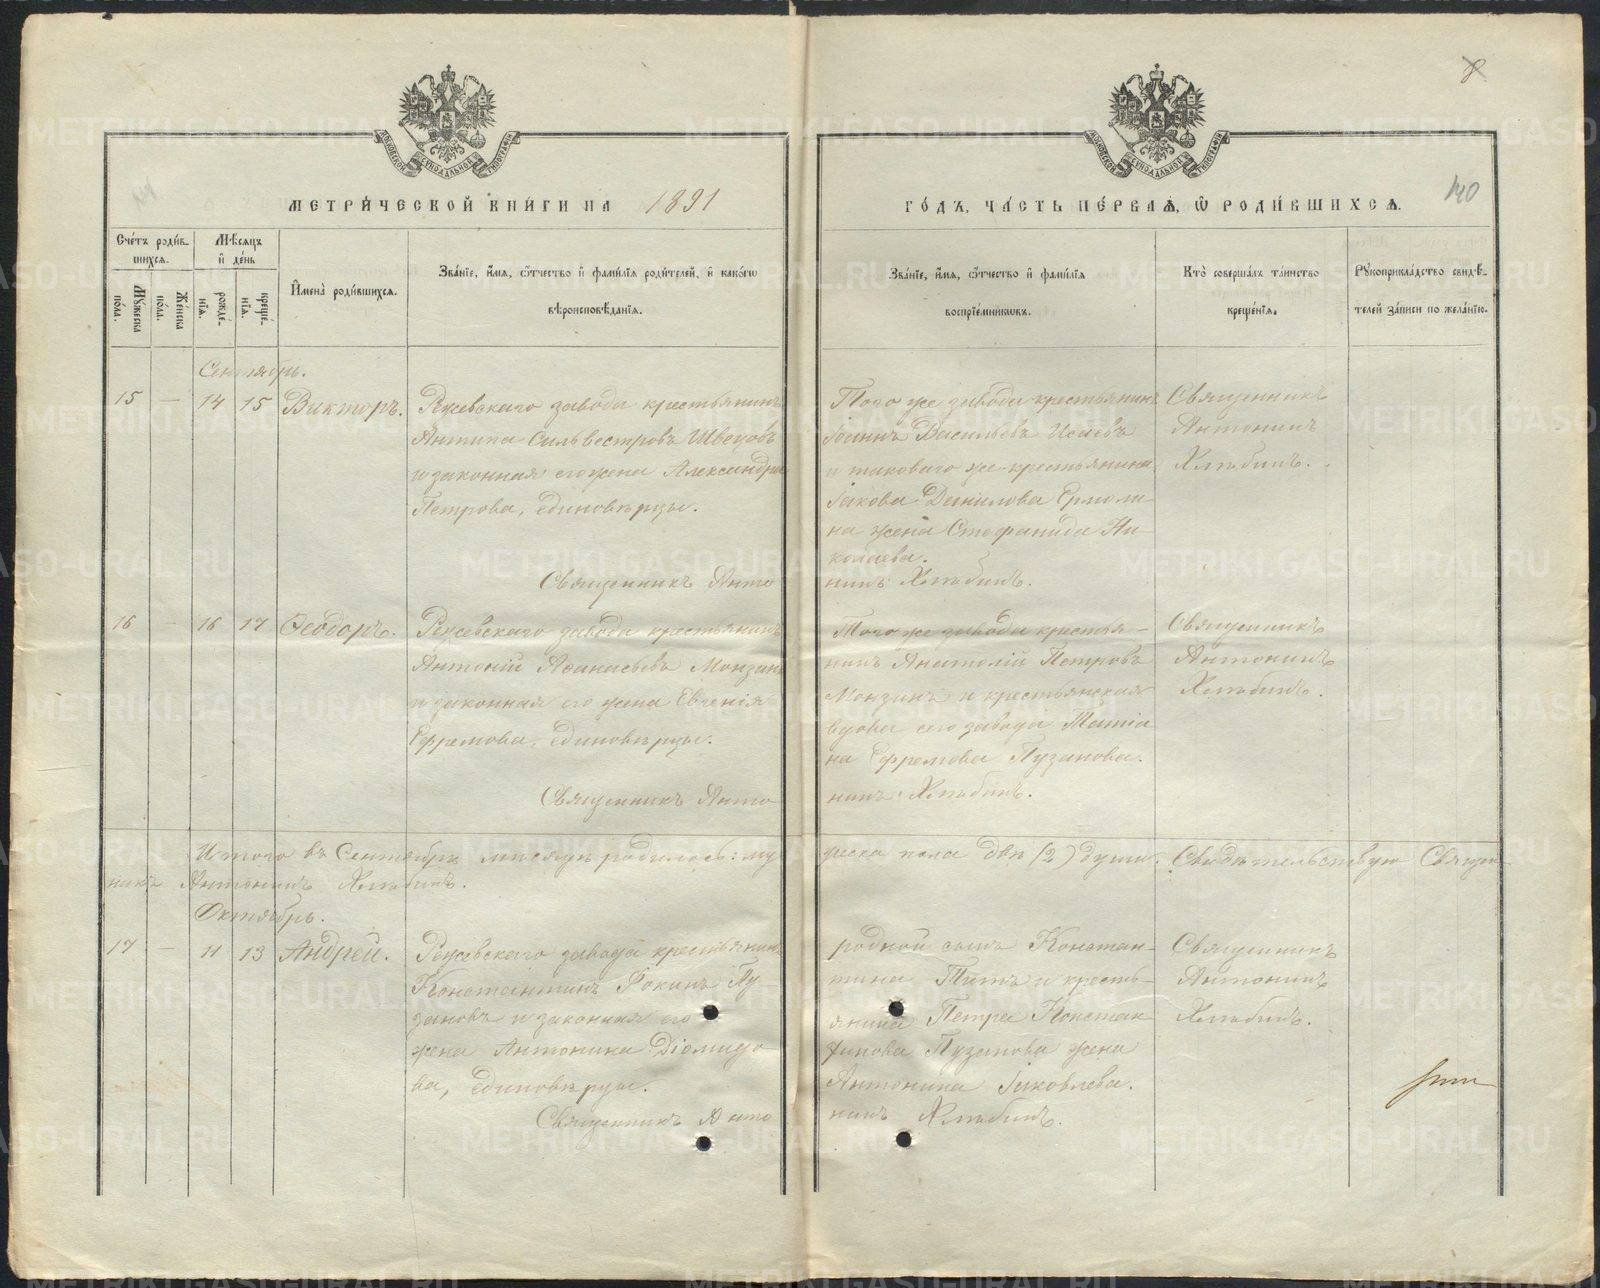 8
140
МОСКОВСКОЙ СѴНОДАЛЬНОЙ ТИПОГРАФІИ
МОСКОВСКОЙ СѴНОДАЛЬНОЙ ТИПОГРАФІИ
МЕТРИ́ЧЕСКОЙ КНИ́ГИ НА 1891
ГО́ДЪ, ЧА́СТЬ ПЕ́РВАѦ, Ѡ҆ РОДИ́ВШИХСѦ.
Сче́тъ роди́в-
шихсѧ.
Мꙋ́жеска по́ла.
Же́нска по́ла.
Мѣ́сѧцъ
и҆ де́нь
рожде́-нїѧ.
креще́-нїѧ.
И҆мена̀ роди́вшихсѧ.
Зва́нїе, и҆́мѧ, ѻ҆́тчество и҆ фами́лїѧ роди́телей, и҆ како́гѡ
вѣроисповѣ́данїѧ.
Зва́нїе, и҆́мѧ, ѻ҆́тчество и҆ фами́лїѧ
воспрїе́мникѡвъ.
Кто̀ соверша́лъ та́инство
креще́нїѧ.
Рꙋкоприкла́дство свидѣ́-
телей за́писи по жела́нїю.
Сентябрь.
15 — 14 15 Викторъ.
Режевскаго завода крестьянинъ
Антипа Сильвестровъ Швецовъ
и законная его жена Александра
Петрова, единовѣрцы.
Того же завода крестьянинъ
Іоаннъ Васильевъ Исаевъ
и таковаго же крестьянина
Іакова Данилова Ермоли-
на жена Стефанида Ни-
колаева.
Священникъ
Антонинъ
Хлѣбинъ.
Священникъ Анто
нинъ Хлѣбинъ.
16 — 16 17 Ѳеодоръ.
Режевскаго завода крестьянинъ
Антоній Аѳанасьевъ Монзинъ
и законная его жена Евгенія
Ефремова, единовѣрцы.
Того же завода крестья-
нинъ Анатолій Петровъ
Монзинъ и крестьянская
вдова сего завода Татіа
на Ефремова Пузанова.
Священникъ
Антонинъ
Хлѣбинъ.
Священникъ Анто
нинъ Хлѣбинъ.
Итого въ Сентябрѣ мѣсяцѣ родилось: му
жеска пола двѣ (2) души. Свидѣтельствую Священ-
никъ Антонинъ Хлѣбинъ.
Октябрь.
17 — 11 13 Андрей.
Режевскаго завода крестьянинъ
Константинъ Фокинъ Пу-
зановъ и законная его
жена Антонина Діомидо
ва, единовѣрцы.
родной сынъ Констан-
тина Титъ и кресть-
янина Петра Констан-
тинова Пузанова жена
Антонина Іаковлева.
Священникъ
Антонинъ
Хлѣбинъ.
Священникъ Анто
нинъ Хлѣбинъ.
METRIKI.GASO-URAL.RU